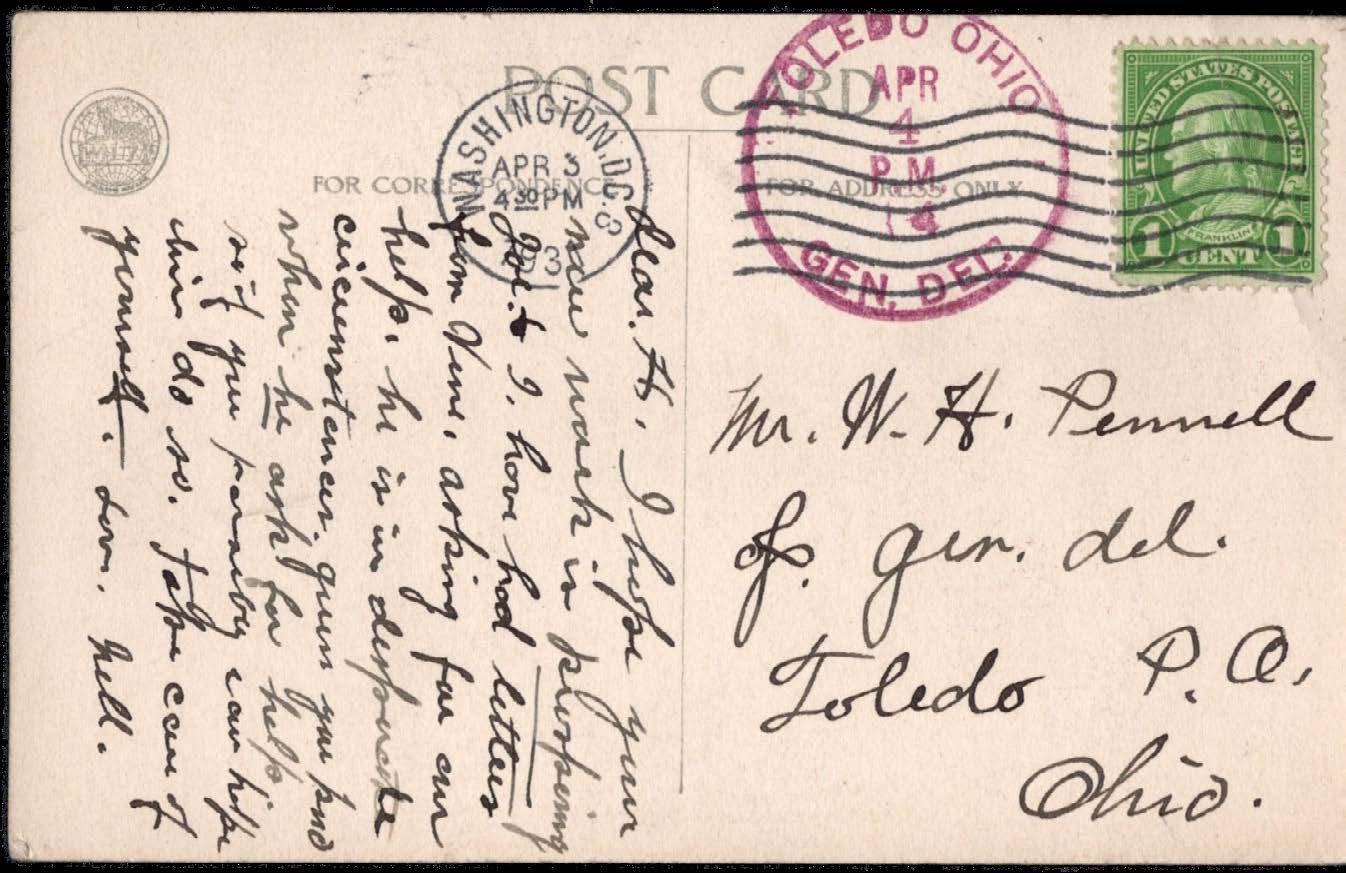 POST CARD
FOR CORRESPONDENCE
FOR ADDRESS ONLY
WASHINGTON, D.C. 8
APR 3
4 30 PM
193
TOLEDO OHIO
APR
4
P.M.
GEN. DEL.
UNITED STATES POSTAGE
1 FRANKLIN 1
CENT
Dear. H, I hope your
new work is pleasing
you. & I. have had letters
from Vene, asking for our
help. he is in desperate
circumstances. given you
when he asks for help
so if you possibly can help
him do so. Take care of
yourself. Love. Nell.
Mr. W. H. Pennell
Gen. del.
Toledo P. O.
Ohio.